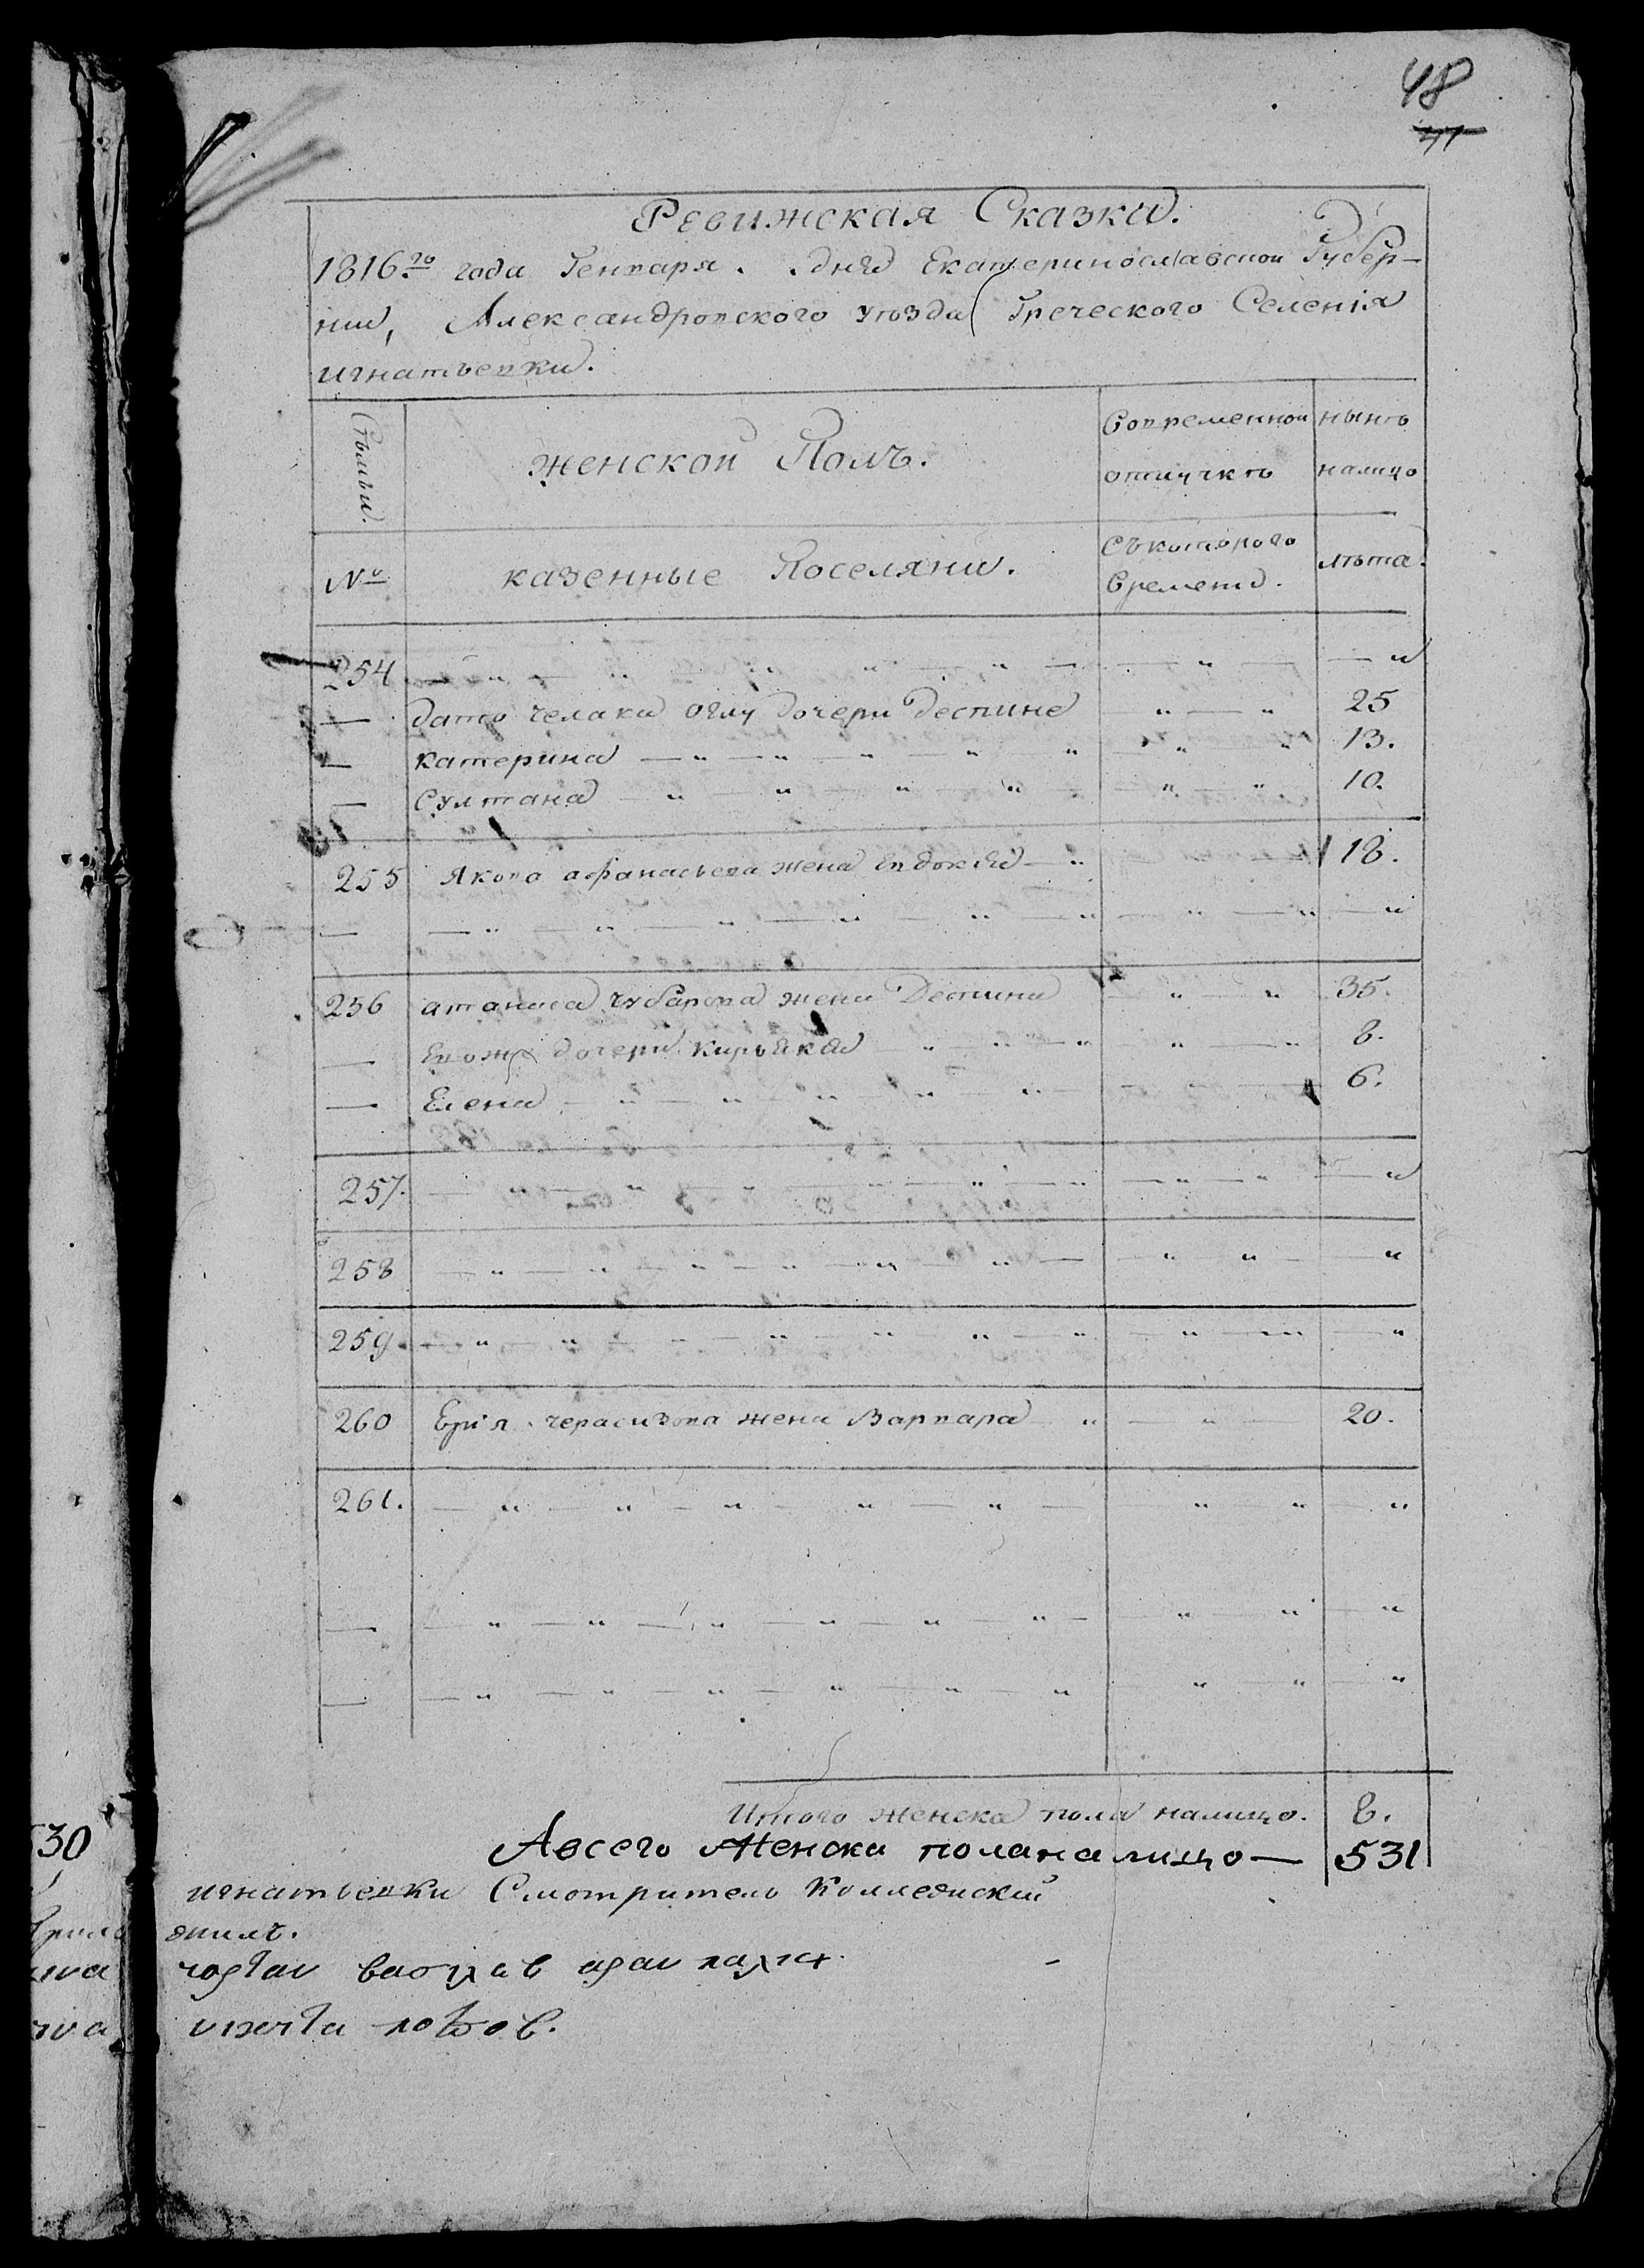 48
47
Ревижская Сказка.
1816го года Генваря. дня Екатеринославской Губер-
нии, Александровского уѣзда Греческого Селенія
игнатьевки.
Сѣмьи.
женской Полъ.
Современной отлучкѣ
нынѣ налицо
№
казенные Поселяни.
Съкоторого Времени.
лѣта.
254 — „ — „ — „ — „ — „
— дато челаки оглу дочери деспине — „ — „ 25
— катерина — „ — „ — „ — „ 13.
— Султана — „ — „ — „ — „ 10.
255 Якова афанасьева жена Евдокия — „ 18.
— — „ — „ — „ — „ — „
256 атанаса чубарова жена Деспина — „ — „ 35.
— Евожъ дочери Кирьякия „ — „ — „ 8.
— Елена — „ — „ — „ — „ 6.
257. — „ — „ — „ — „ — „
258 — „ — „ — „ — „ — „
259. — „ — „ — „ — „ — „
260 жена Варвара „ — „ — 20.
261. — „ — „ — „ — „ — „
— — „ — „ — „ — „ — „
— — „ — „ — „ — „ — „
Итого женска пола налицо. 8.
Авсего Женска поланалицо — 531
530
игнатьевки Смотритель Коллежский